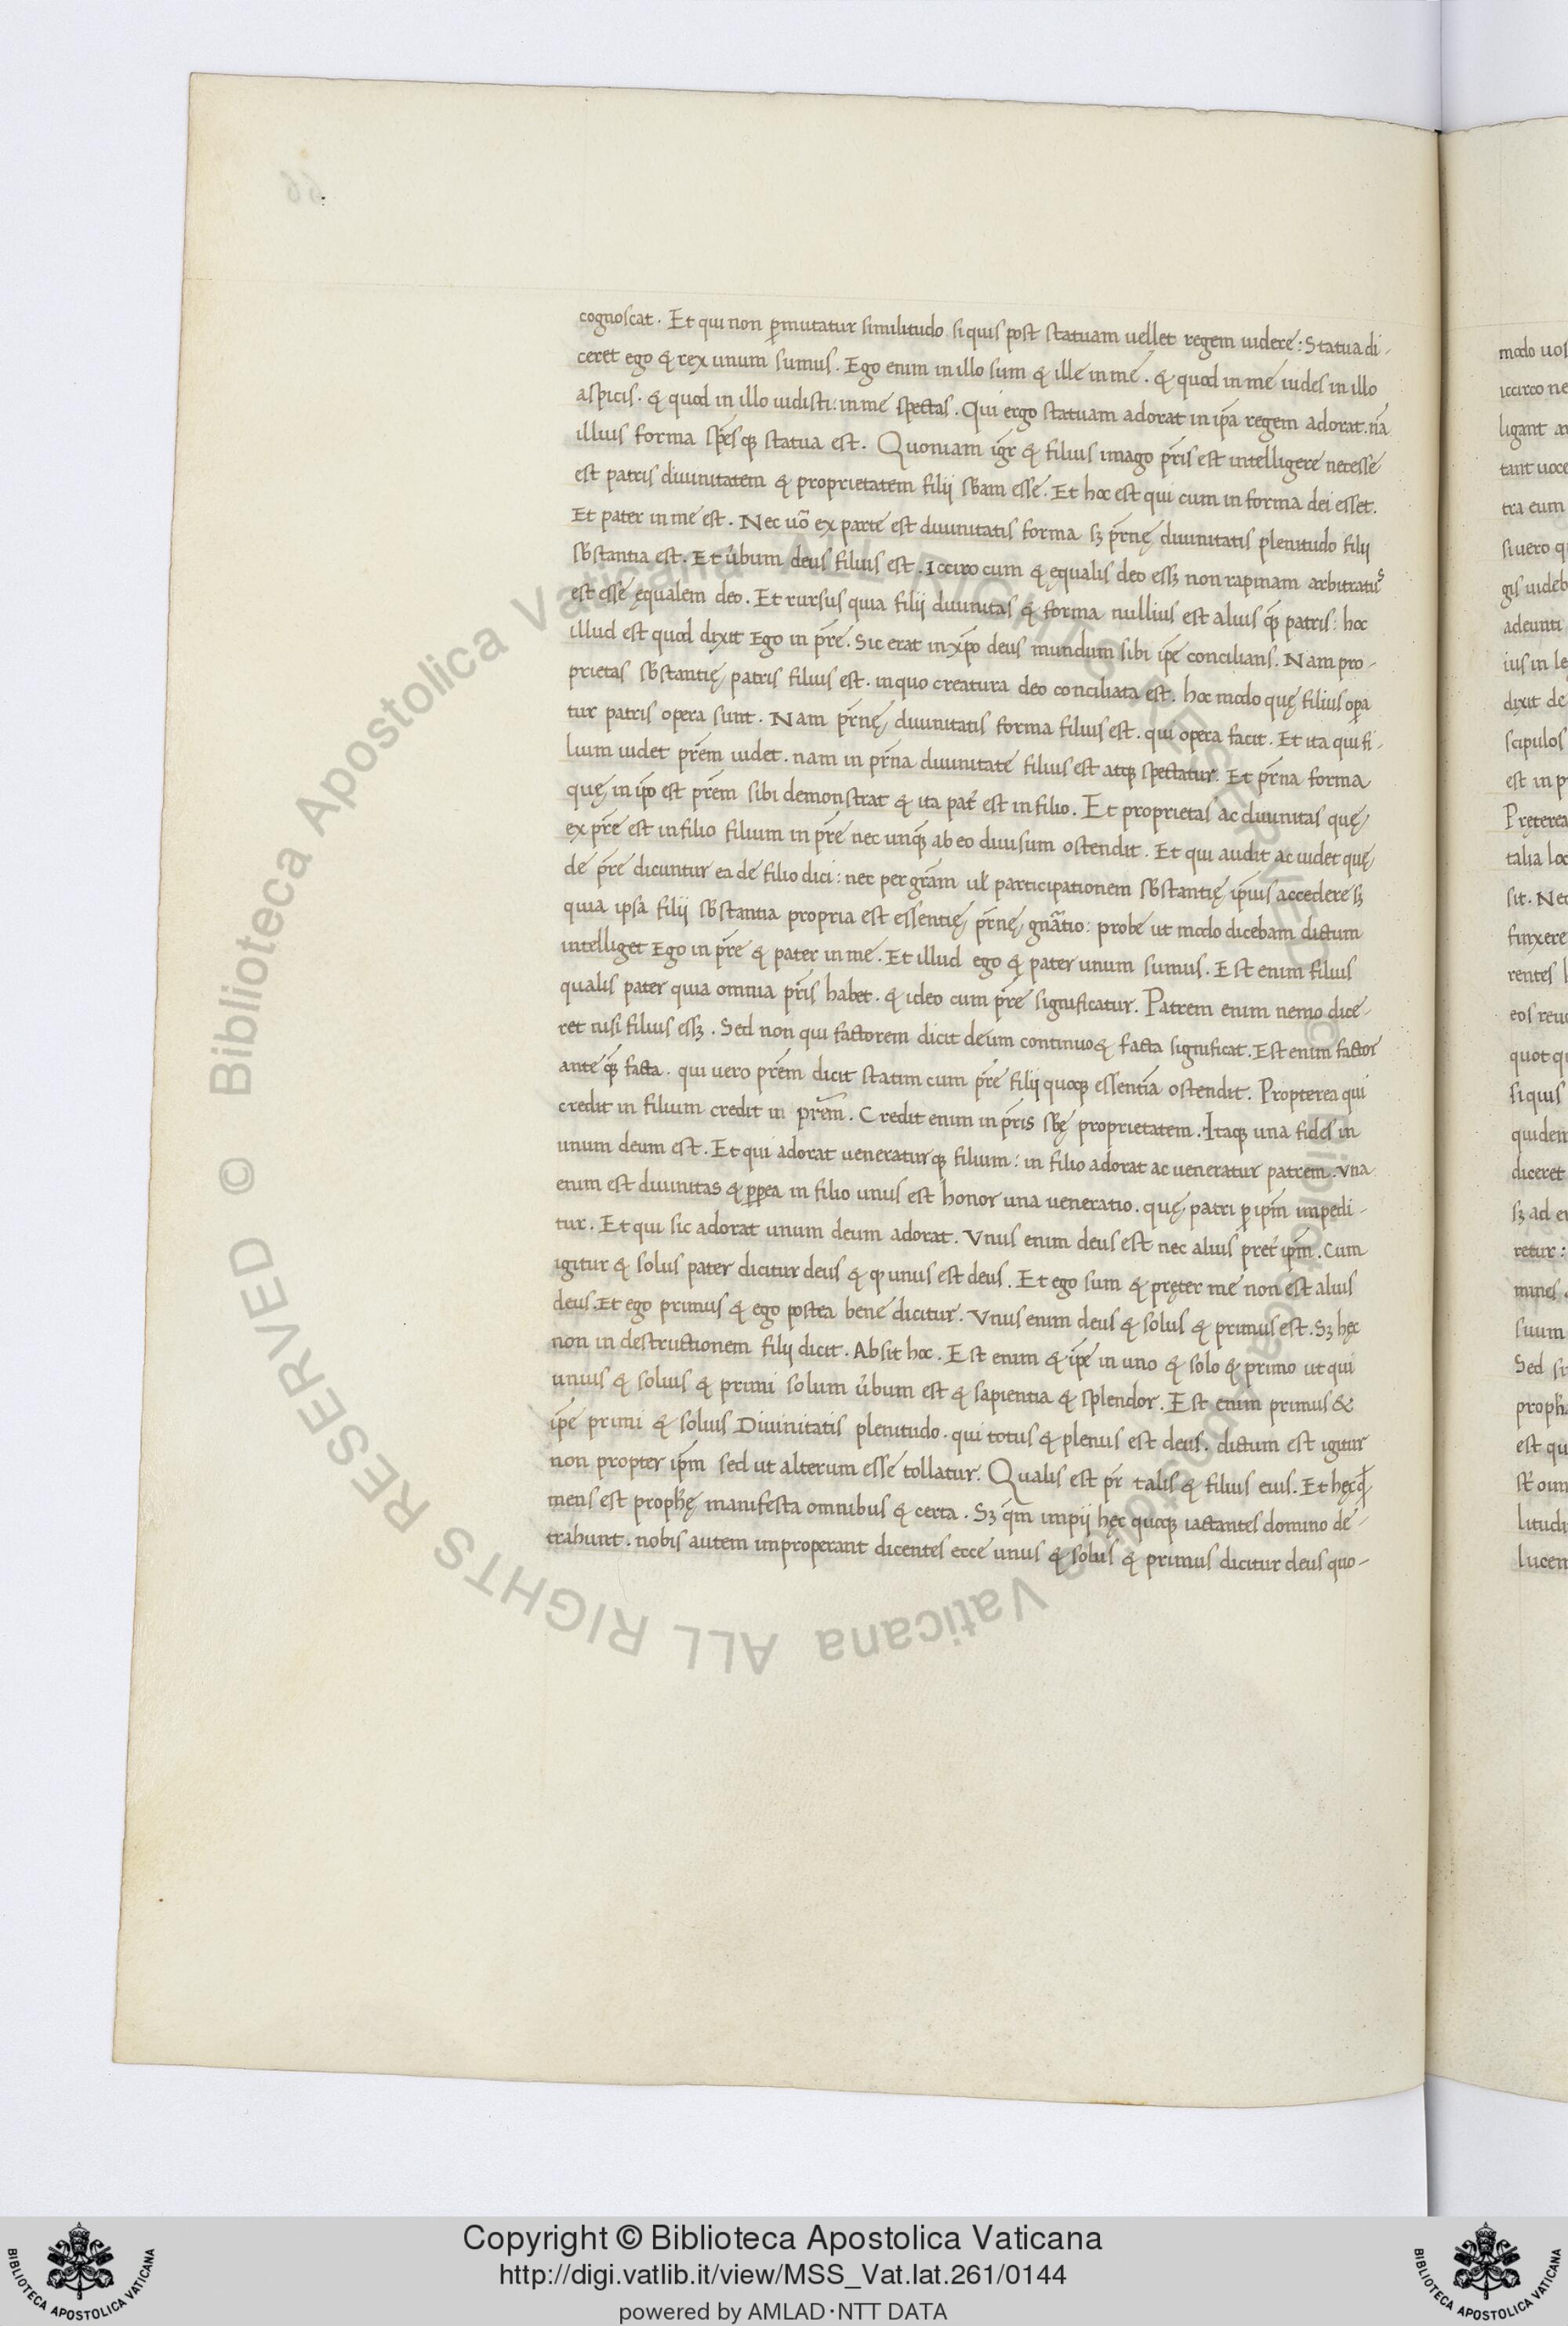 cognoscat. Et qui non ꝑmutatur similitudo si quis post statuam uellet regem uidere: Statua di-
ceret ego & rex unum sumus. Ego enim in illo sum & ille in me. & quod in me uides in illo
aspicis. & quod in illo uidisti: in me spectas. Qui ergo statuam adorat in ip̄a regem adorat. nā
illius forma sp̄esqꝫ statua est. Quoniam igr̄ & filius imago pr̄is est intelligere necesse
est patris diuinitatem & proprietatem filij sb̄am esse. Et hoc est qui cum in forma dei esset.
Et pater in me est. Nec uō ex parte est diuinitatis forma sꝫ pr̄nę diuinitatis plenitudo filij
sb̄stantia est. Et u̇bum deus filius est. Icciro cum & ęqualis deo essꝫ non rapinam arbitratus
est esse ęqualem deo. Et rursus quia filij diuinitas & forma nullius est alius qꝫ patris: hoc
illud est quod dixit Ego in pr̄e. Sic erat in xp̄o deus mundum sibi ip̄e concilians. Nam pro-
prietas sb̄stantię patris filius est. in quo creatura deo conciliata est. hoc modo quę filius oꝑa
tur patris opera sunt. Nam pr̄nę diuinitatis forma filius est. qui opera facit. Et ita qui fi-
lium uidet pr̄em uidet. nam in pr̄na diuinitate filius est atqꝫ spectatur. Et pr̄na forma
quę in ip̄o est pr̄em sibi demonstrat & ita pat̄ est in filio. Et proprietas ac diuinitas quę
ex pr̄e est in filio filium in pr̄e nec unqꝫ ab eo diuisum ostendit. Et qui audit ac uidet quę
de pr̄e dicuntur ea de filio dici: nec per gr̄am ul̄ participationem sb̄stantię ip̄ius accedere sꝫ
quia ipsa filij sb̄stantia propria est essentię pr̄nę gn̄atio: probe ut modo dicebam dictum
intelliget Ego in pr̄e & pater in me. Et illud ego & pater unum sumus. Est enim filius
qualis pater quia omnia pr̄is habet. & ideo cum pr̄e significatur. Patrem enim nemo dice-
ret nisi filius essꝫ. Sed non qui factorem dicit deum continuo & facta significat. Est enim factor
ante qꝫ facta. qui uero pr̄em dicit statim cum pr̄e filij quoqꝫ essentiā ostendit. Propterea qui
credit in filium credit in pr̄em. Credit enim in pr̄is sb̄ę proprietatem. Itaqꝫ una fides in
unum deum est. Et qui adorat ueneraturqꝫ filium: in filio adorat ac ueneratur patrem. Vna
enim est diuinitas & ꝓpꝑea in filio unus est honor una ueneratio. quę patri ꝑ ip̄m impedi-
tur. Et qui sic adorat unum deum adorat. Vnus enim deus est nec alius pret̄ ip̄m. Cum
igitur & solus pater dicitur deus & ꝙ unus est deus. Et ego sum & pręter me non est alius
deus. Et ego primus & ego postea bene dicitur. Vnus enim deus & solus & primus est. Sꝫ hęc
non in destructionem filij dicit. Absit hoc. Est enim & ip̄e in uno & solo & primo ut qui
unius & solius & primi solum u̇bum est & sapientia & splendor. Est enim primus &
ip̄e primi & solius Diuinitatis plenitudo. qui totus & plenus est deus. dictum est igitur
non propter ip̄m sed ut alterum esse tollatur. Qualis est pr̄ talis & filius eius. Et hęc
mens est prophę̄ manifesta omnibus & certa. Sꝫ qm̄ impij hęc quoqꝫ iactantes domino de-
trahunt. nobis autem improperant dicentes ecce unus & solus & primus dicitur deus quo-
modo uos
iccirco ne
ligant
tant uoce
tra eum
si uero
gis uideb
adeunti
ius in le
dixit de
scipulos
est in
Pręterea
talia loc
sit. Nec
finxere
rentes
eos
quot
si quis
quidem
diceret
sꝫ ad
retur:
suum
Sed
est qu
litudi
lucem
Copyright © Biblioteca Apostolica Vaticana
http://digi.vatlib.it/view/MSS_Vat.lat.261/0144
powered by AMLAD·NTT DATA
BIBLIOTECA APOSTOLICA VATICANA
BIBLIOTECA APOSTOLICA VATICANA
© Biblioteca Apostolica Vaticana ALL RIGHTS RESERVED © Biblioteca Apostolica Vaticana ALL RIGHTS RESERVED